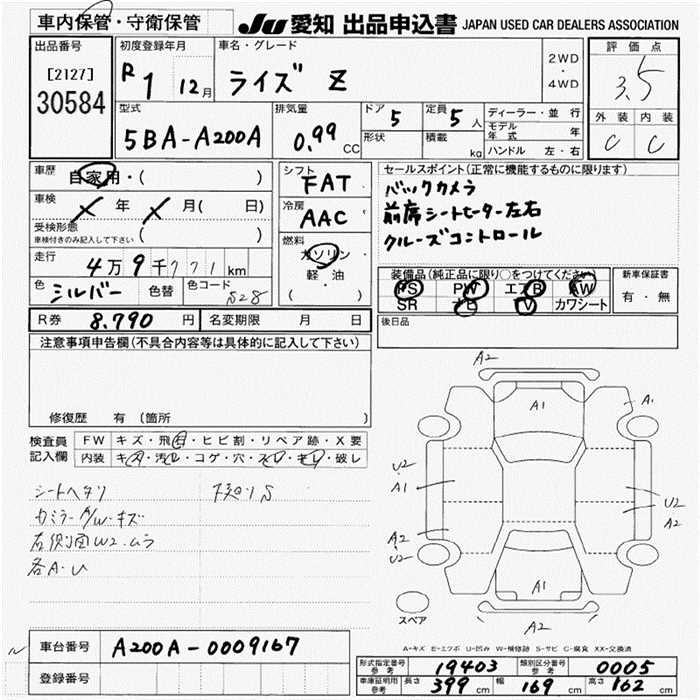 車内保管・守衛保管
JU 愛知 出品申込書 JAPAN USED CAR DEALERS ASSOCIATION
出品番号
[2127]
30584
初度登録年月
R 1 12月
車名・グレード
ライズ Z
2WD
・
4WD
評価点
3.5
外装 内装
C C
型式
5BA-A200A
排気量
0.99 CC
ドア 5
形状
定員 5 人
積載 kg
ディーラー・並行
モデル年式 年
ハンドル 左・右
車歴
自家用・( )
車検
X 年 X 月( 日)
受検形態
車検付きのみ記入して下さい ( )
走行
4万9千771km
色 シルバー 色替 色コード S28
シフト
FAT
冷房
AAC
燃料
ガソリン・
軽・油
( )
セールスポイント(正常に機能するものに限ります)
バックカメラ
前席シートヒーター左右
クルーズコントロール
装備品(純正品に限り○をつけてください)
PS PW エアB AW
SR ナビ TV カワシート
新車保証書
有・無
後日品
R券 8.790 円 名変期限 月 日
注意事項申告欄(不具合内容等は具体的に記入して下さい)
修復歴 有(箇所 )
検査員
記入欄
FW キズ・飛石・ヒビ割・リペア跡・X要
内装 キズ・汚レ・コゲ・穴・スレ・キレ・破レ
シートヘタリ 下廻りS
カラミラーA/W・キズ
右側面W2.ムラ
各A・U
A2
A1
A1
U2
A1
A2
U2
U2
A2
A1
A2
スペア
A-キズ E-エクボ U-凹み W-補修跡 S-サビ C-腐食 XX-交換済
車台番号 A200A-0009167
登録番号
形式指定番号 参考 19403 類別区分番号 参考 0005
車庫証明用 参考 長さ 399 cm 幅 169 cm 高さ 162 cm